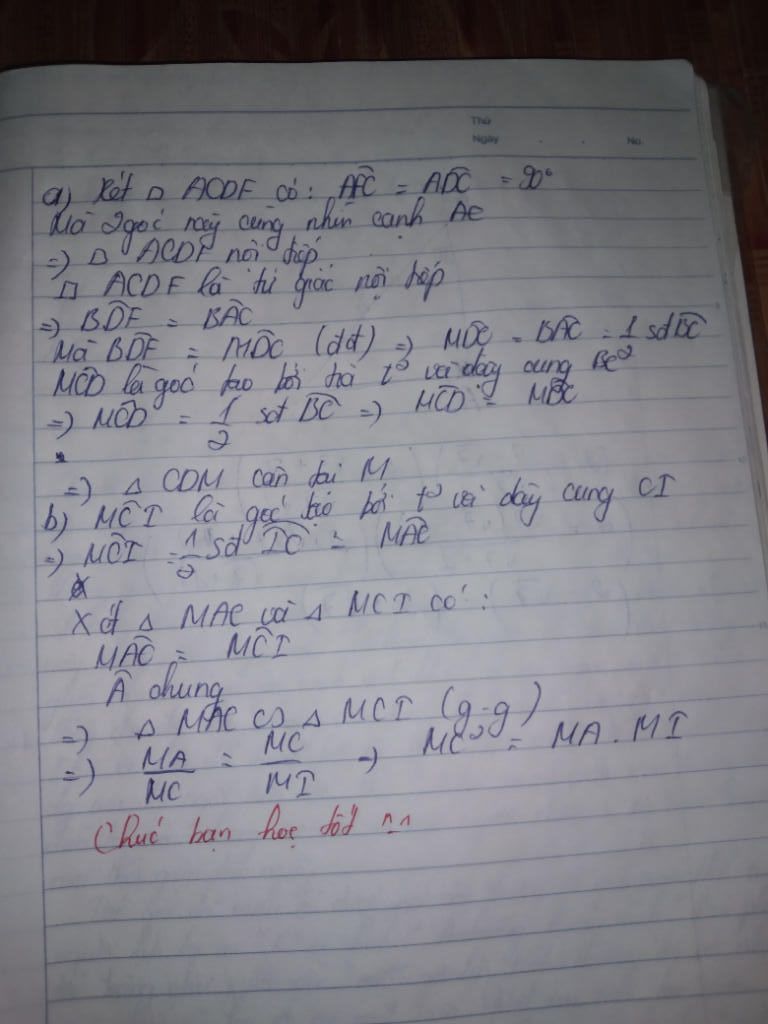 Thứ
Ngày . . No.
a) Xét □ ACDF có: AFC = ADC = 90°
Mà 2 góc này cùng nhìn cạnh AC
=) □ ACDF nội tiếp
□ ACDF là tứ giác nội tiếp
=) BDF = BAC
Mà BDF = MDC (đđ) =) MDC = BAC = 1 sđ BC
MCD là góc tạo bởi t² và dây cung BC 2
=) MCD = 1/2 sđ BC =) MCD =
=) △ CDM cân tại M
b) MCI là góc tạo bởi t² và dây cung CI
=) MCI = 1/2 sđ IC = MAC
Xét △ MAC và △ MCI có:
MAC = MCI
 chung
=) △ MAC ∽ △ MCI (g-g)
=) MA/MC = MC/MI =) MC² = MA . MI
Chúc bạn học tốt ^.^